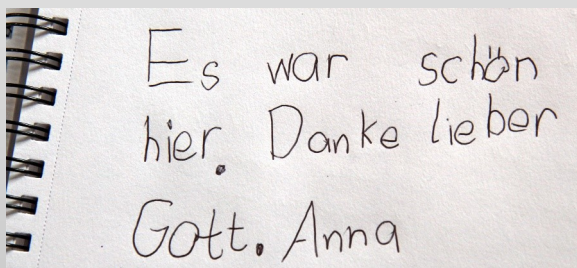 Es war schön
hier. Danke lieber
Gott. Anna